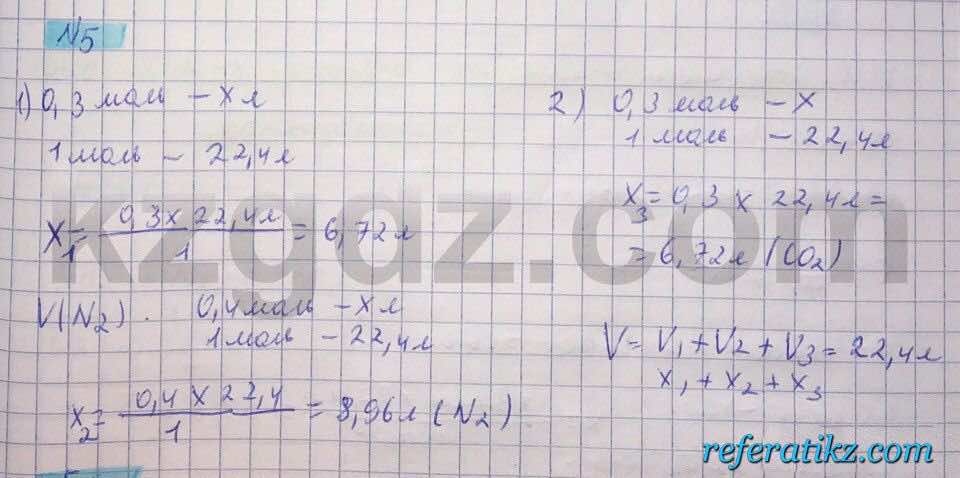 №5
1) 0,3 моль – x л
1 моль – 22,4л
X₁ = 0,3 x 22,4л / 1 = 6,72л
V(N₂). 0,4 моль – x л
1 моль – 22,4л
x₂ = 0,4 x 22,4 / 1 = 8,96л (N₂)
2) 0,3 моль – x
1 моль – 22,4л
x₃ = 0,3 x 22,4л =
= 6,72л (CO₂)
V = V₁ + V₂ + V₃ = 22,4л
x₁ + x₂ + x₃
kzgdz.com
referatikz.com